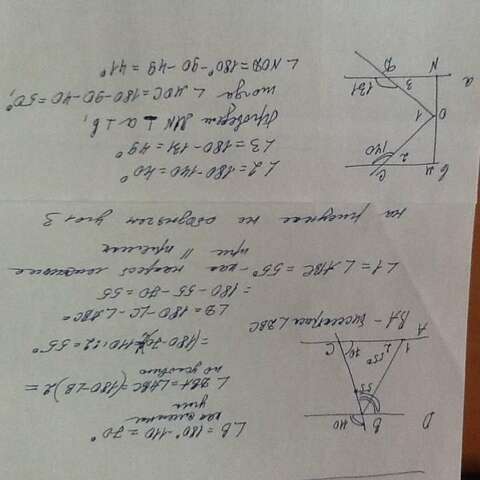 ∠B = 180° - 110 = 70°
как смежные
углы
∠DBA = ∠ABC = (180 - ∠B) : 2 =
по условию
= (180 - 70) = 110 : 2 = 55°
∠B = 180 - ∠C - ∠ABC =
= 180 - 55 - 70 = 55
∠1 = ∠ABC = 55° - как накрест лежащие
при || прямых
D
B
110
55
A
1
2
55°
70
C
BA - биссектриса ∠DBC
на рисунке не обозначен угол 3
∠2 = 180 - 140 = 40°
∠3 = 180 - 131 = 49°
Проведем MN ⊥ a ⊥ b,
тогда ∠MOC = 180 - 90 - 40 = 50°,
∠NOD = 180° - 90 - 49 = 41°
M
C
2
140
1
O
3
131
N
D
a